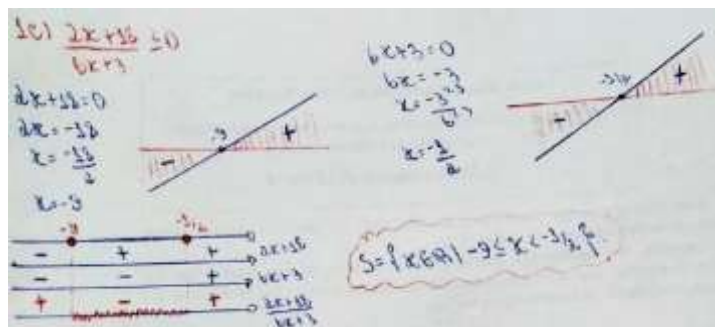 1c) (2x+18)/(6x+3) ≤ 0
2x+18=0
2x=-18
x=-18/2
x=-9
-9
-
+
6x+3=0
6x=-3
x=-3÷3/6÷3
x=-1/2
-1/2
-
+
-9 -1/2
- + + 2x+18
- - + 6x+3
+ - + (2x+18)/(6x+3)
S={x∈R|-9≤x<-1/2}